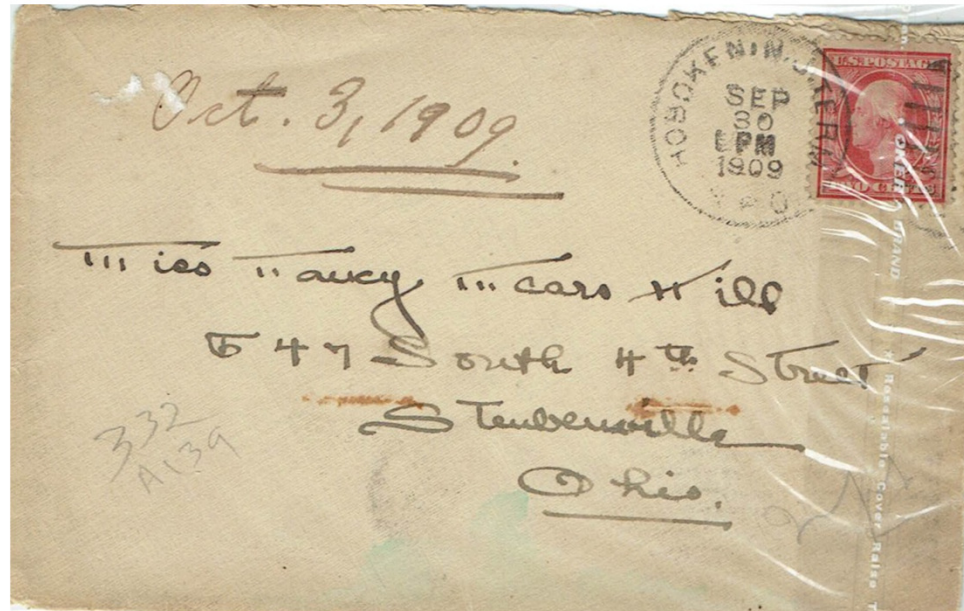 Oct. 3, 1909.
HOBOKEN, N.J. TERM.
SEP
30
PM
1909
U.S. POSTAGE
TWO CENTS
Miss Nancy Mears Hill
547 South 4th Street
Steubenville
Ohio.
332
A139
Resealable Cover